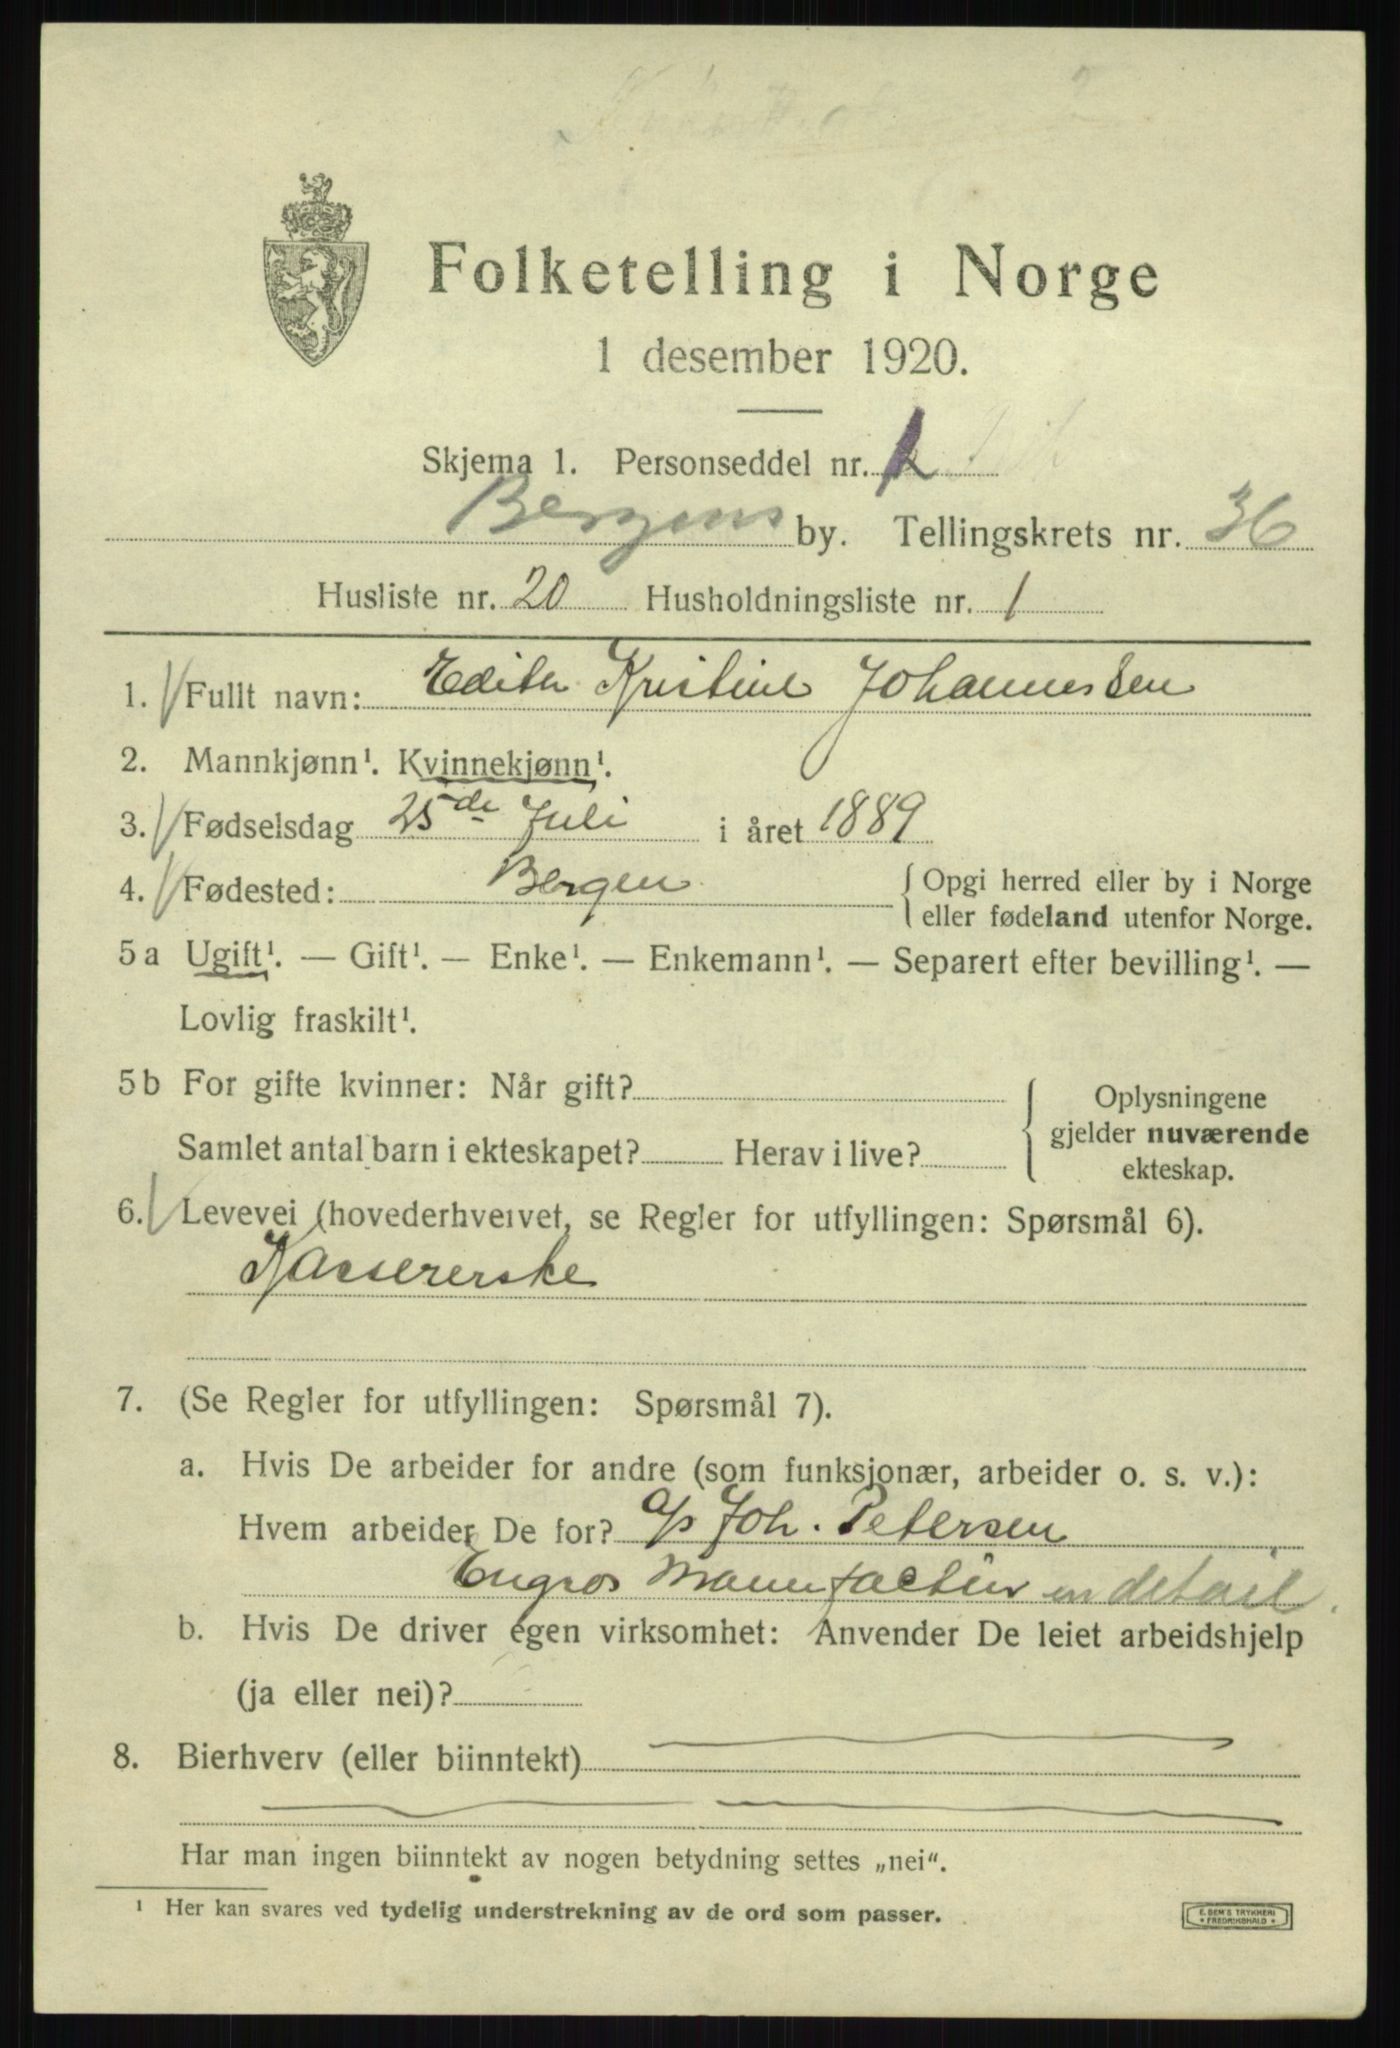 Folketelling i Norge
1 desember 1920.
Skjema 1. Personseddel nr.
Bergens by. Tellingskrets nr. 36
Husliste nr. 20 Husholdningsliste nr. 1
1. Fullt navn: Edith Kristine Johannessen
2. Mannkjønn¹. Kvinnekjønn¹.
3. Fødselsdag 25de Juli i året 1889
4. Fødested: Bergen { Opgi herred eller by i Norge
eller fødeland utenfor Norge.
5a Ugift¹. — Gift¹. — Enke¹. — Enkemann¹. — Separert efter bevilling¹. —
Lovlig fraskilt¹.
5b For gifte kvinner: Når gift?
Samlet antal barn i ekteskapet? Herav i live?
{ Oplysningene
gjelder nuværende
ekteskap.
6. Levevei (hovederhvervet, se Regler for utfyllingen: Spørsmål 6).
Kassererske
7. (Se Regler for utfyllingen: Spørsmål 7).
a. Hvis De arbeider for andre (som funksjonær, arbeider o. s. v.):
Hvem arbeider De for? a/s Joh. Petersen
Engros Manufactur en detail.
b. Hvis De driver egen virksomhet: Anvender De leiet arbeidshjelp
(ja eller nei)?
8. Bierhverv (eller biinntekt)
Har man ingen biinntekt av nogen betydning settes „nei“.
¹ Her kan svares ved tydelig understrekning av de ord som passer.
E. SEM'S TRYKKERI
FREDRIKSHALD